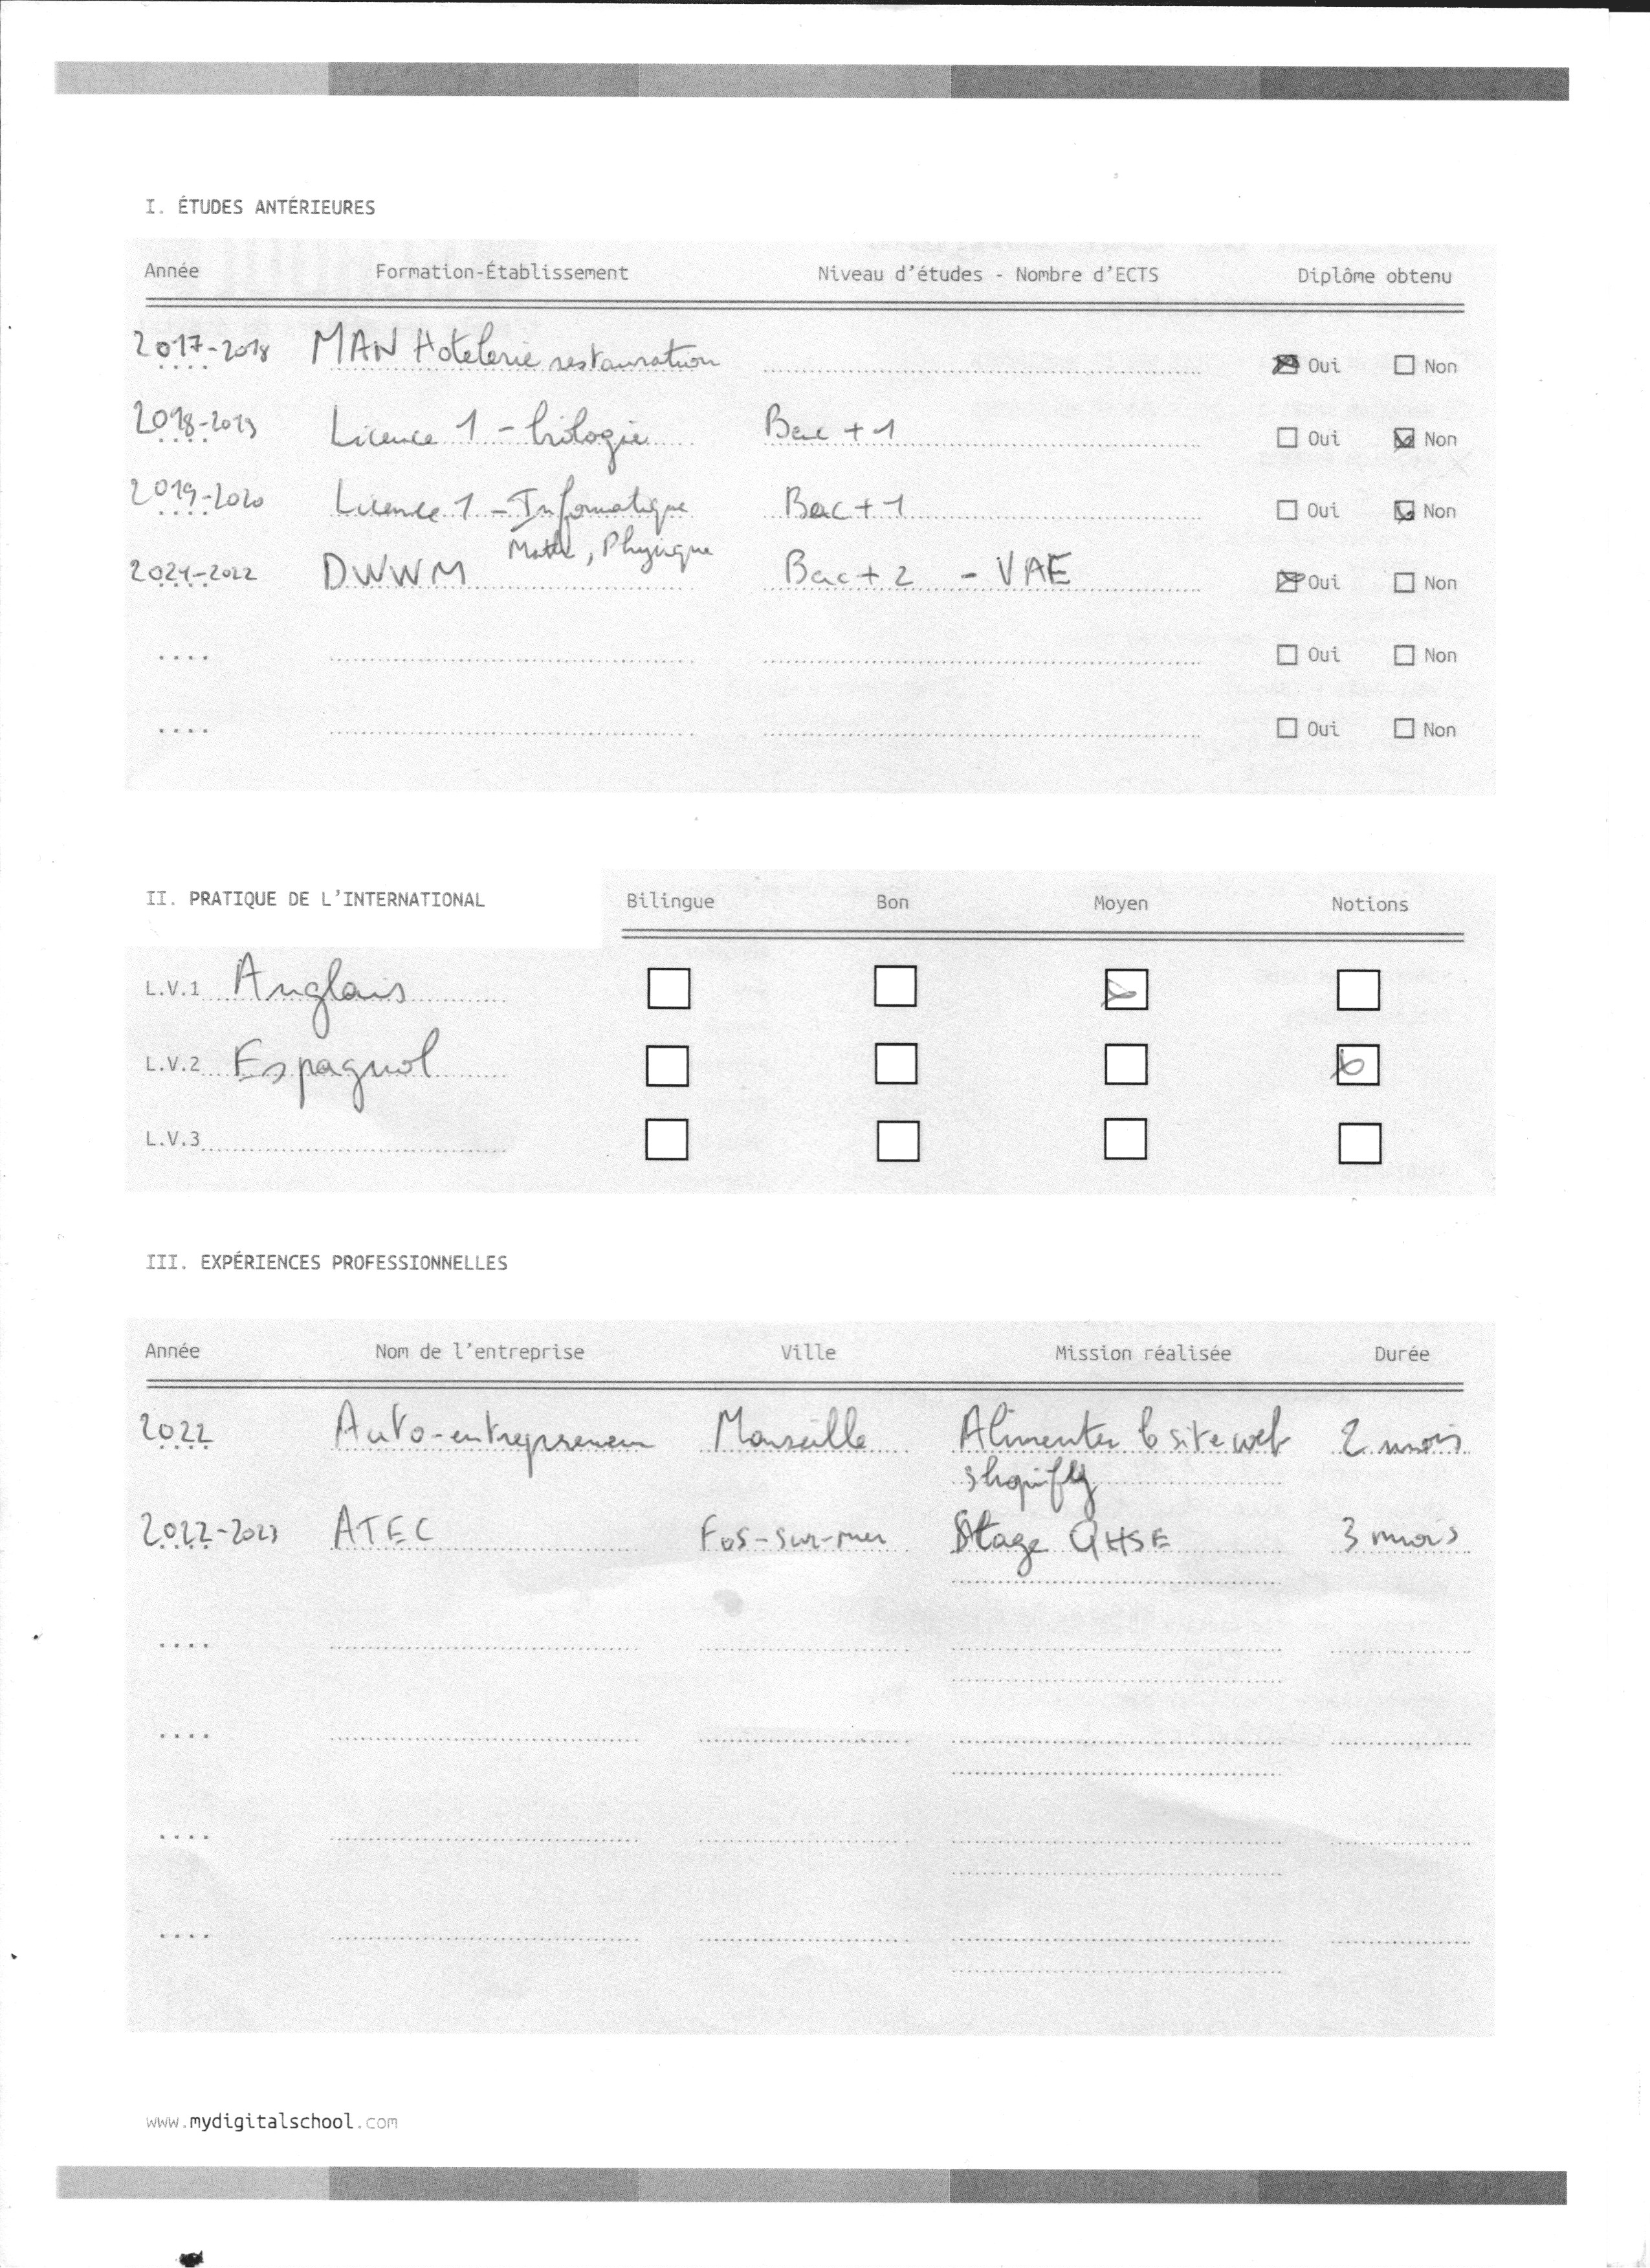 I. ÉTUDES ANTÉRIEURES
Année Formation-Établissement Niveau d'études - Nombre d'ECTS Diplôme obtenu
2017-2018 MAN Hotelerie restauration Oui Non
2018-2019 Licence 1 - biologie Bac +1 Oui Non
2019-2020 Licence 1 - Informatique Bac+1 Oui Non
Math, Physique
2021-2022 DWWM Bac+2 - VAE Oui Non
Oui Non
Oui Non
II. PRATIQUE DE L'INTERNATIONAL Bilingue Bon Moyen Notions
L.V.1 Anglais
L.V.2 Espagnol
L.V.3
III. EXPÉRIENCES PROFESSIONNELLES
Année Nom de l'entreprise Ville Mission réalisée Durée
2022 Auto-entrepreneur Marseille Alimenter le site web 2 mois
shopify
2022-2023 ATEC Fos-sur-mer Stage QHSE 3 mois
www.mydigitalschool.com